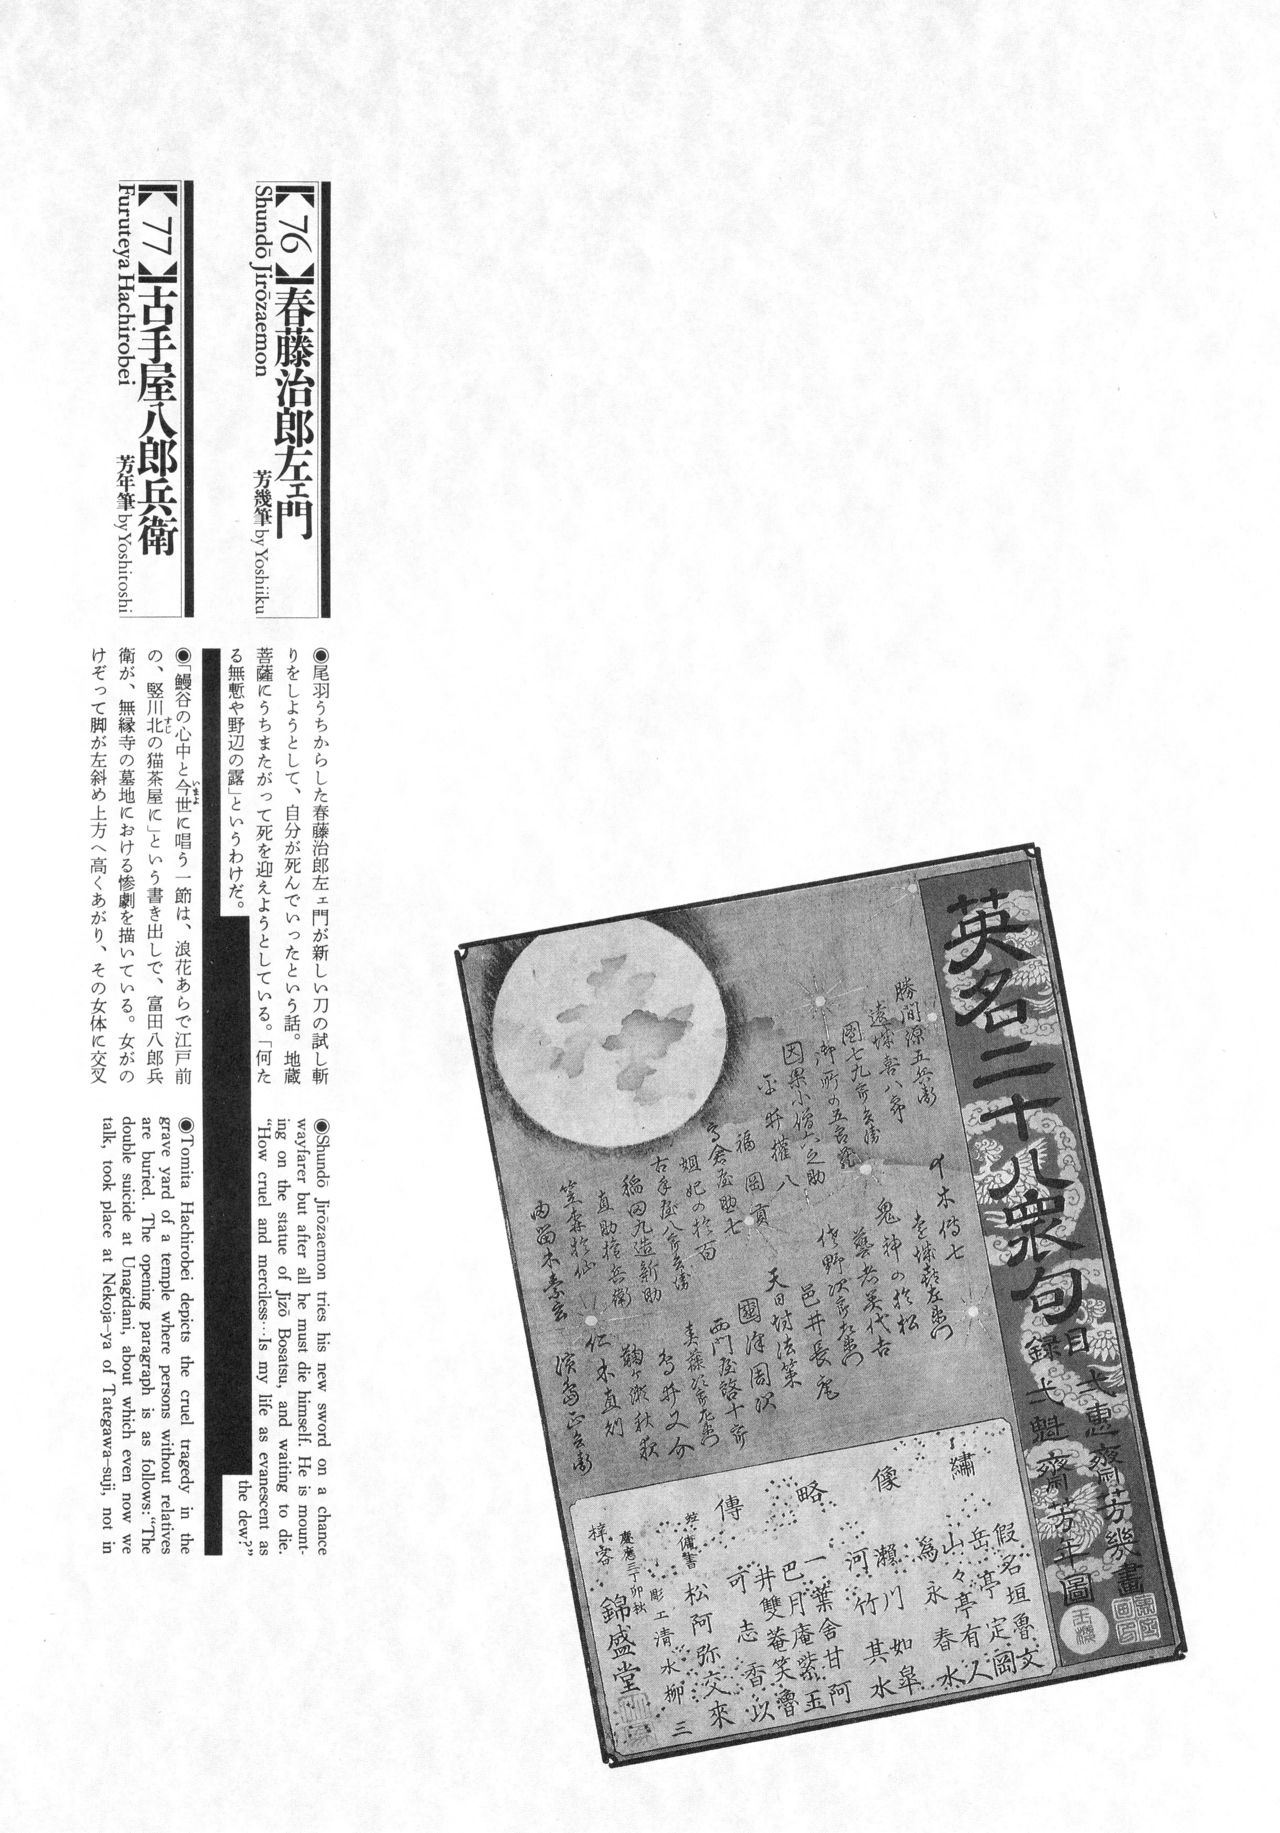 英名二十八衆句
目
録
弌惠齋芳幾畫
弌魁齋芳年圖
勝間源五兵衛
遠城喜八郎
團七九郎兵衛
御所の五郎蔵
因果小僧六之助
平井權八
福岡貢
高倉屋助七
妲妃の於百
古手屋八郎兵衛
稲田九造新助
直助権兵衛
笠森於仙
由留木素玄
十木傳七
遠城喜左衛門
鬼神の於松
藝者美代吉
佐野次郎左衛門
邑井長庵
天日坊法策
國澤周次
西門屋啓十郎
春藤治郎左衛門
鳥井又介
鞠ヶ瀬秋夜
仁木直則
濱島正兵衛
繡像略傳
假名垣魯文
岳亭定岡
山々亭有人
為永春水
瀬川如皐
河竹其水
一葉舎甘阿
巴月庵紫玉
井雙菴笑魯
可志香以
松阿弥交來
彫工清水柳三
慶應三丁卯秋
梓客
錦盛堂
【76】春藤治郎左ェ門
Shundō Jirōzaemon
芳幾筆 by Yoshiiku
●尾羽うちからした春藤治郎左ェ門が新しい刀の試し斬
りをしようとして、自分が死んでいったという話。地蔵
菩薩にうちまたがって死を迎えようとしている。「何た
る無慙や野辺の露」というわけだ。
●Shundō Jirōzaemon tries his new sword on a chance
wayfarer but after all he must die himself. He is mount-
ing on the statue of Jizō Bosatsu, and waiting to die.
“How cruel and merciless…Is my life as evanescent as
the dew?”
【77】古手屋八郎兵衛
Furuteya Hachirobei
芳年筆 by Yoshitoshi
●「鰻谷の心中と今世に唱う一節は、浪花あらで江戸前
の、竪川北の猫茶屋に」という書き出しで、富田八郎兵
衛が、無縁寺の墓地における惨劇を描いている。女がの
けぞって脚が左斜め上方へ高くあがり、その女体に交叉
●Tomita Hachirobei depicts the cruel tragedy in the
grave yard of a temple where persons without relatives
are buried. The opening paragraph is as follows: “The
double suicide at Unagidani, about which even now we
talk, took place at Nekoja-ya of Tategawa-suji, not in